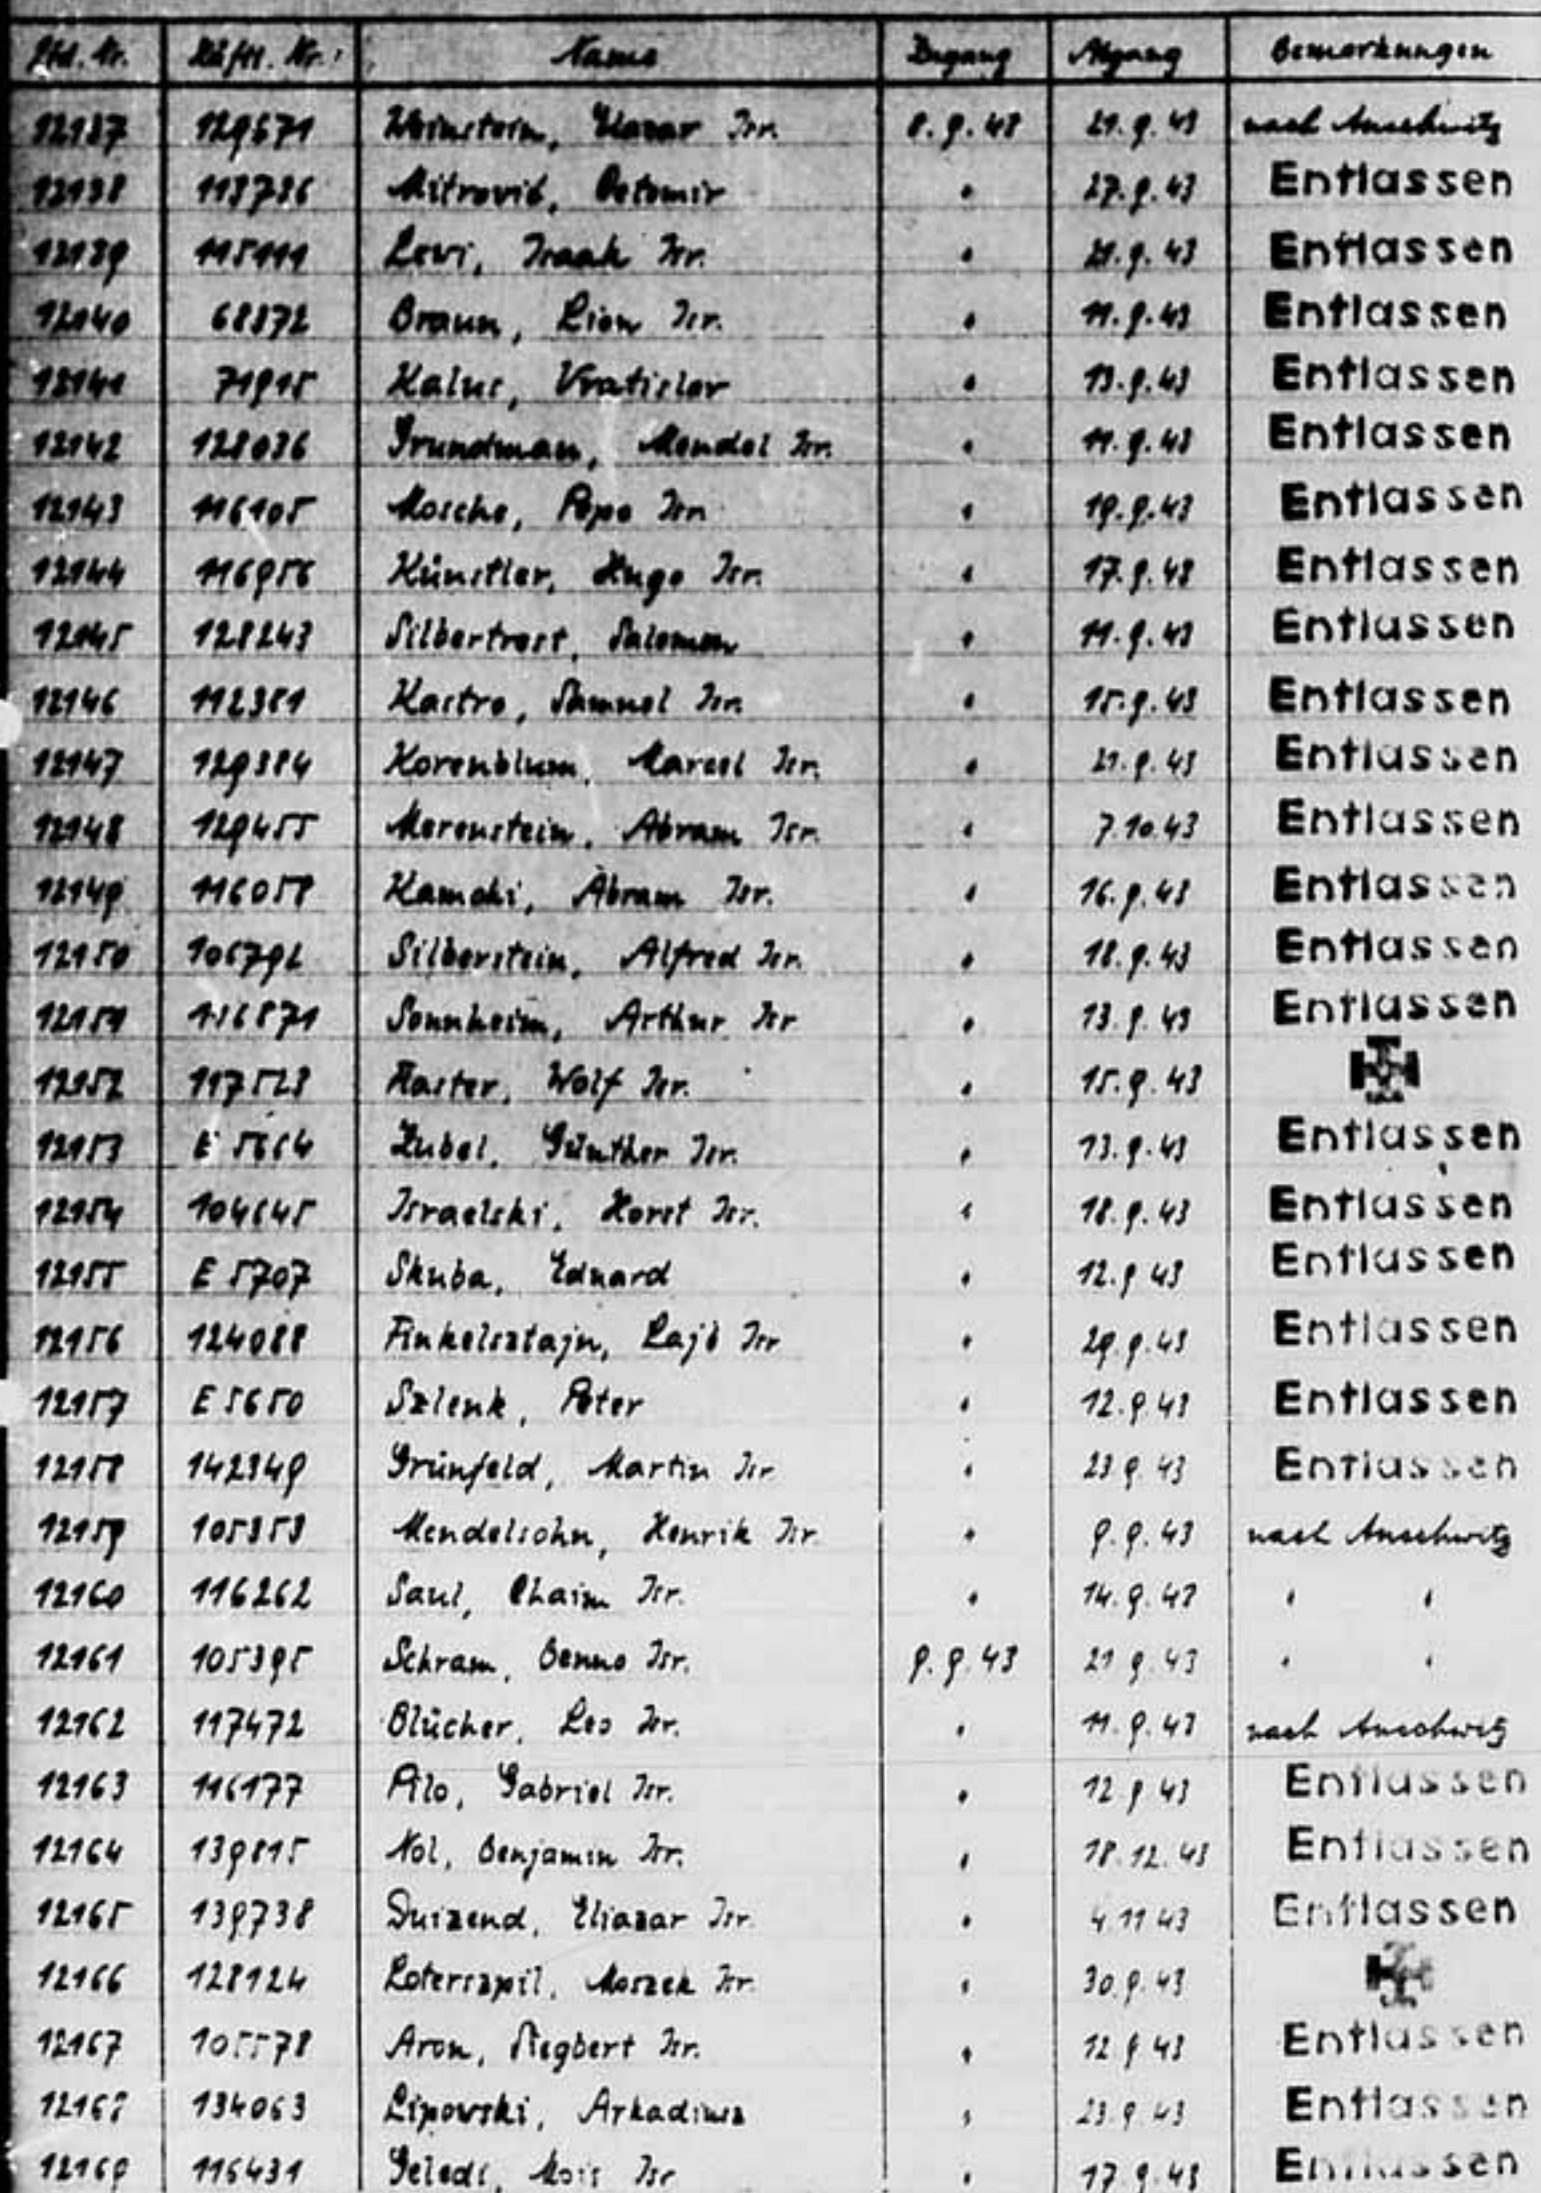 Lfd. Nr. Häftl. Nr. Name Zugang Abgang Bemerkungen
12137 129671 Weinstein, Elazar Isr. 8.9.43 21.9.43 nach Auschwitz
12138 113736 Mitrović, " 27.9.43 Entlassen
12139 115111 Levi, Isaak Isr. " 21.9.43 Entlassen
12140 68372 Braun, Lion Isr. " 11.9.43 Entlassen
12141 71915 Kalus, Vratislav " 13.9.43 Entlassen
12142 128036 Grundman, Mendel Isr. " 11.9.43 Entlassen
12143 116105 Mosche, Pepo Isr. " 19.9.43 Entlassen
12144 116956 Künstler, Hugo Isr. " 17.9.43 Entlassen
12145 128243 Silbertrost, Salomon " 11.9.43 Entlassen
12146 112381 Kastro, Samuel Isr. " 15.9.43 Entlassen
12147 129384 Korenblum, Marcel Isr. " 21.9.43 Entlassen
12148 129455 Merenstein, Abram Isr. " 7.10.43 Entlassen
12149 116058 Kamchi, Abram Isr. " 16.9.43 Entlassen
12150 106792 Silberstein, Alfred Isr. " 18.9.43 Entlassen
12151 116871 Sonnheim, Arthur Isr " 13.9.43 Entlassen
12152 117523 Wolf Isr. " 15.9.43
12153 E 5664 Günther Isr. " 13.9.43 Entlassen
12154 104645 Israelski, Horst Isr. " 18.9.43 Entlassen
12155 E 5707 Skuba, Eduard " 12.9.43 Entlassen
12156 124088 Finkelsztajn, Lajb Isr " 29.9.43 Entlassen
12157 E 5650 Szlenk, Peter " 12.9.43 Entlassen
12158 142349 Grünfeld, Martin Isr " 23.9.43 Entlassen
12159 105353 Mendelsohn, Henrik Isr. " 9.9.43 nach Auschwitz
12160 116262 Saul, Chaim Isr. " 14.9.43 " "
12161 105395 Schram, Benno Isr. 9.9.43 21.9.43 " "
12162 117472 Blücher, Leo Isr. " 11.9.43 nach Auschwitz
12163 116177 Pilo, Gabriel Isr. " 12.9.43 Entlassen
12164 139815 Nol, Benjamin Isr. " 18.12.43 Entlassen
12165 139738 Duizend, Eliazar Isr. " 4.11.43 Entlassen
12166 128124 Loterszpil, Moszek Isr. " 30.9.43
12167 105578 Aron, Siegbert Isr. " 12.9.43 Entlassen
12168 134063 Lipowski, Arkadiusz " 23.9.43 Entlassen
12169 116431 Isr " 17.9.43 Entlassen